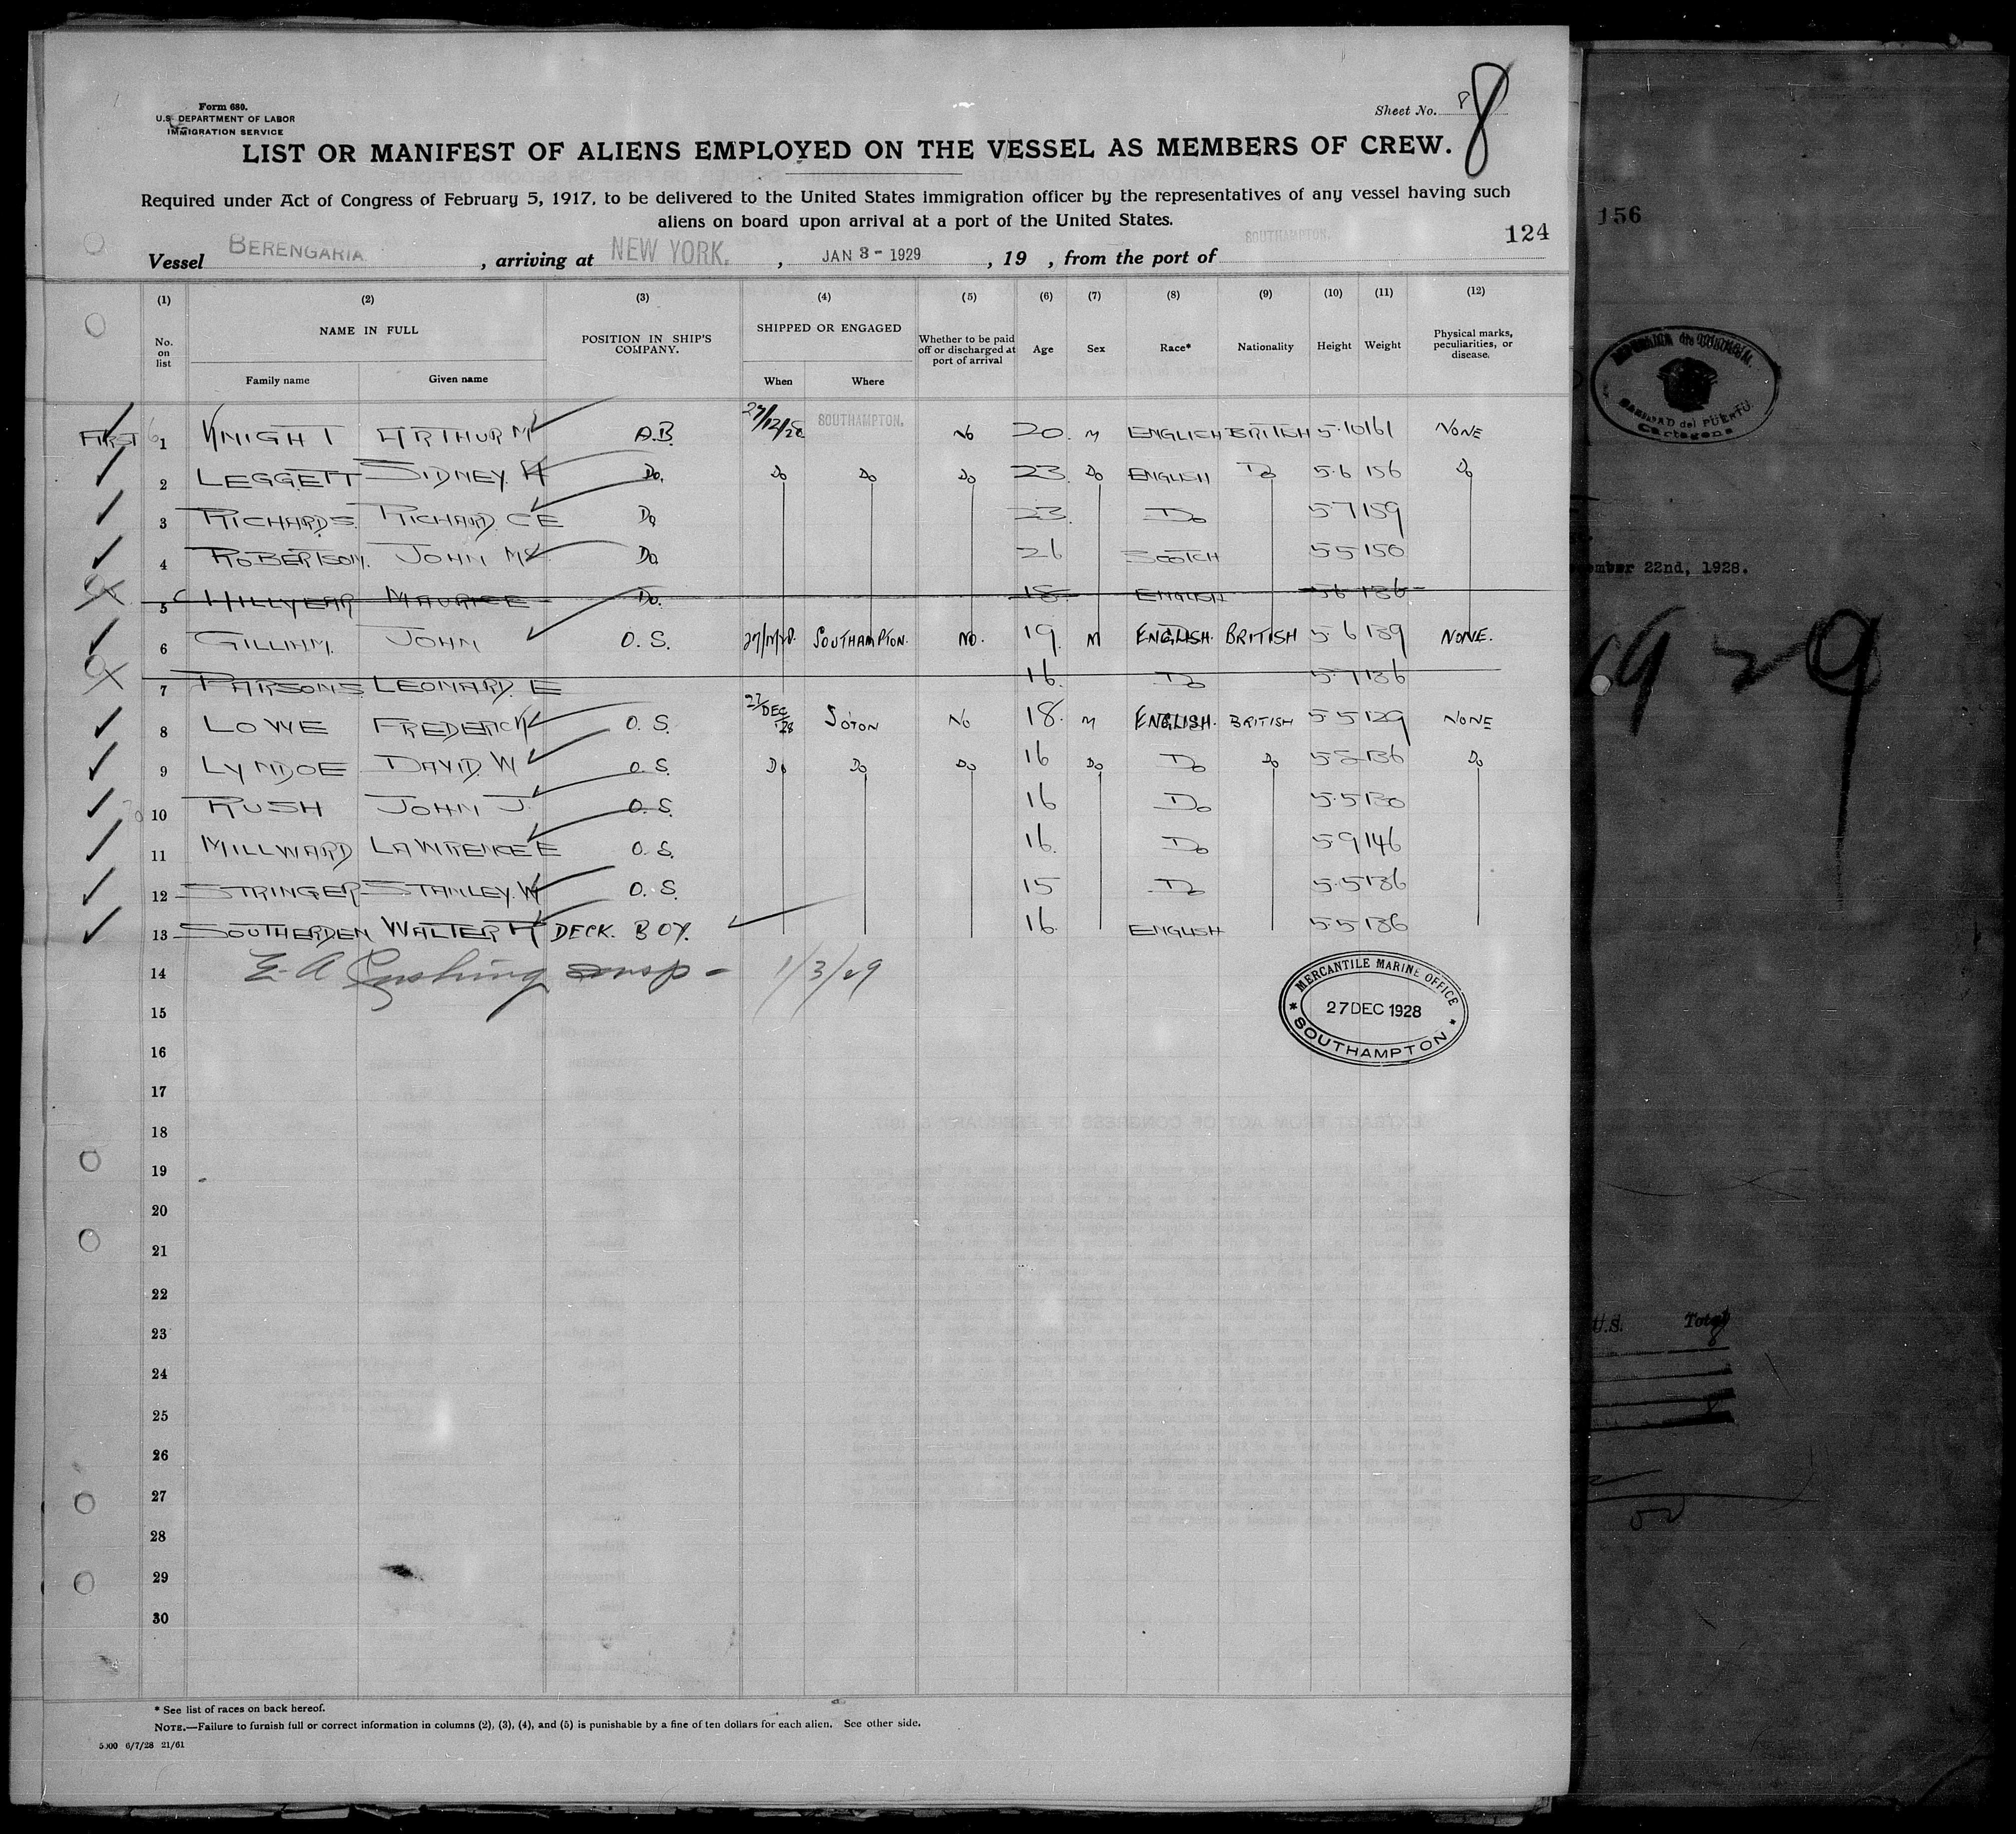 Form 680.
U.S. DEPARTMENT OF LABOR
IMMIGRATION SERVICE
Sheet No. 8 8
LIST OR MANIFEST OF ALIENS EMPLOYED ON THE VESSEL AS MEMBERS OF CREW.
Required under Act of Congress of February 5, 1917, to be delivered to the United States immigration officer by the representatives of any vessel having such
aliens on board upon arrival at a port of the United States.
124
Vessel BERENGARIA, arriving at NEW YORK., JAN 3 - 1929, 19 , from the port of SOUTHAMPTON.
(1) (2) (3) (4) (5) (6) (7) (8) (9) (10) (11) (12)
No. on list NAME IN FULL POSITION IN SHIP'S COMPANY. SHIPPED OR ENGAGED Whether to be paid off or discharged at port of arrival Age Sex Race* Nationality Height Weight Physical marks, peculiarities, or disease.
Family name Given name When Where
FIRST 1 KNIGHT ARTHUR M A.B. 27/12/28 SOUTHAMPTON. No 20. M ENGLISH BRITISH 5.10 161 NONE
2 LEGGETT SIDNEY. H Do. Do Do Do 23. Do ENGLISH Do 5.6 156 Do
3 RICHARDS. RICHARD C E Do 23. Do 5.7 159
4 ROBERTSON. JOHN Do 26 SCOTCH 5.5 150
5 HILLYEAR MAURICE Do. 18 ENGLISH 5.6 136
6 JOHN O.S. SOUTHAMPTON. No. 19. M ENGLISH. BRITISH 5.6 139 NONE.
7 PARSONS LEONARD. E 16. Do 5.7 136
8 LOWE FREDERICK O.S. 27/DEC/28 S'OTON No 18. M ENGLISH. BRITISH 5.5 129 NONE
9 LYNDOE DAVID. W O.S. Do Do Do 16 Do Do Do 136 Do
10 RUSH JOHN J. O.S. 16 Do 5.5 130
11 MILLWARD LAWRENCE E O.S. 16. Do 5.9 146
12 STRINGER STANLEY. W O.S. 15 Do 5.5 136
13 SOUTHERDEN WALTER DECK. BOY. 16. ENGLISH 5.5 136
14 E. A Cushing insp - 1/3/29
15
16
17
18
19
20
21
22
23
24
25
26
27
28
29
30
MERCANTILE MARINE OFFICE
27 DEC 1928
SOUTHAMPTON
* See list of races on back hereof.
NOTE.—Failure to furnish full or correct information in columns (2), (3), (4), and (5) is punishable by a fine of ten dollars for each alien. See other side.
5000 6/7/28 21/61
156
SANIDAD del PUERTO.
Cartagena
22nd, 1928.
U.S. Total